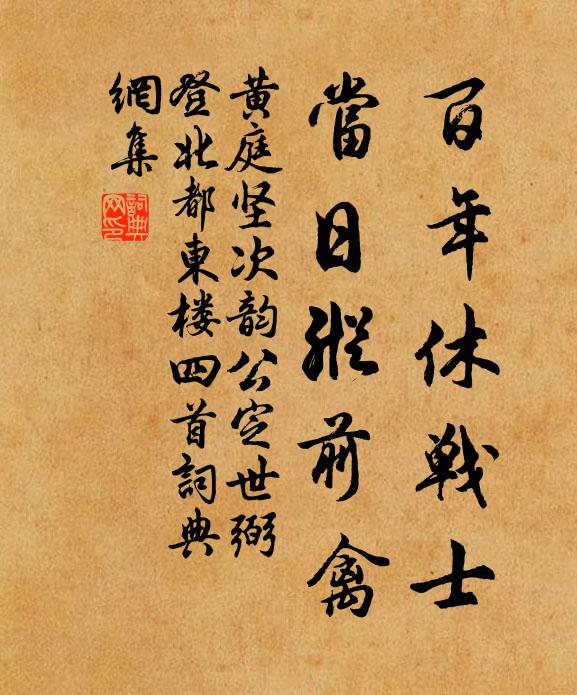 百年休戦士
當日縱前禽
黄庭坚次韵公定世弼
登北都東楼四首詞典
網集
詞典
网印